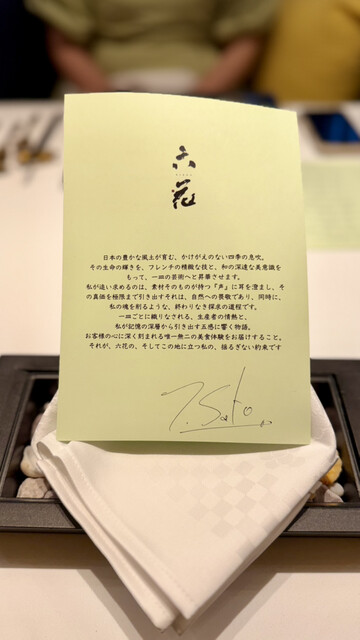 六
花
日本の豊かな風土が育む、かけがえのない四季の息吹。
その生命の輝きを、フレンチの精緻な技と、和の深遠な美意識を
もって、一皿の芸術へと昇華させます。
私が追い求めるのは、素材そのものが持つ『声』に耳を澄まし、そ
の真価を極限まで引き出すそれは、自然への畏敬であり、同時に、
私の魂を削るような、終わりなき探求の道程です。
一皿ごとに織りなされる、生産者の情熱と、
私が記憶の深層から引き出す五感に響く物語。
お客様の心に深く刻まれる唯一無二の美食体験をお届けすること。
それが、六花の、そしてこの地に立つ私の、揺るぎない約束です
T. Sato